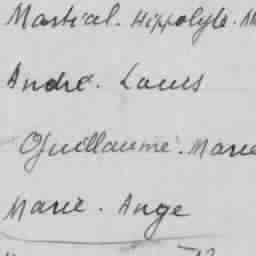 Martial. Hippolyte.
André. Louis
Guillaume. Marie
Marie. Ange